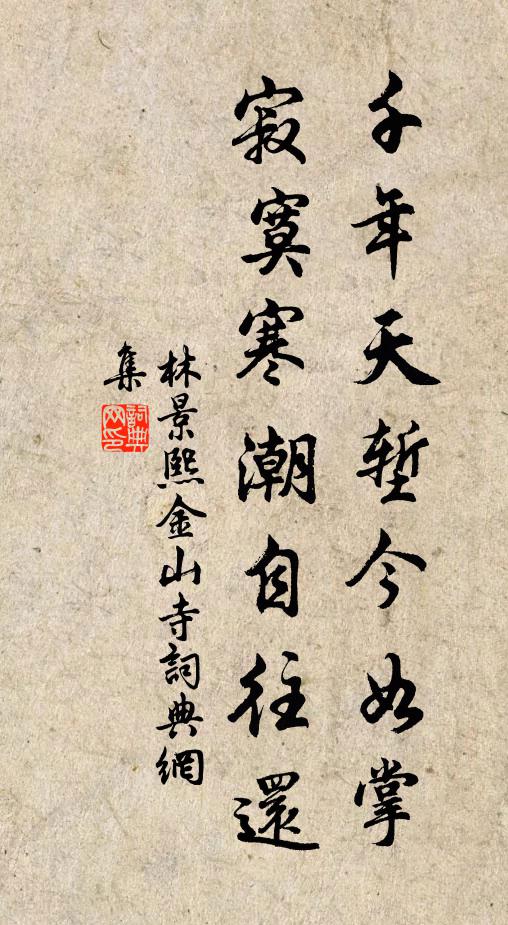 千年天塹今如掌
寂寞寒潮自往還
林景熙金山寺詞典網
集
詞典
网印